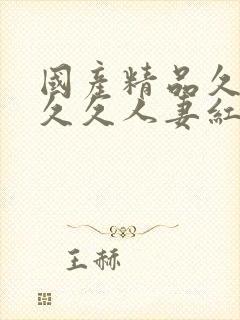 國產精品久
久久人妻紅
王赫